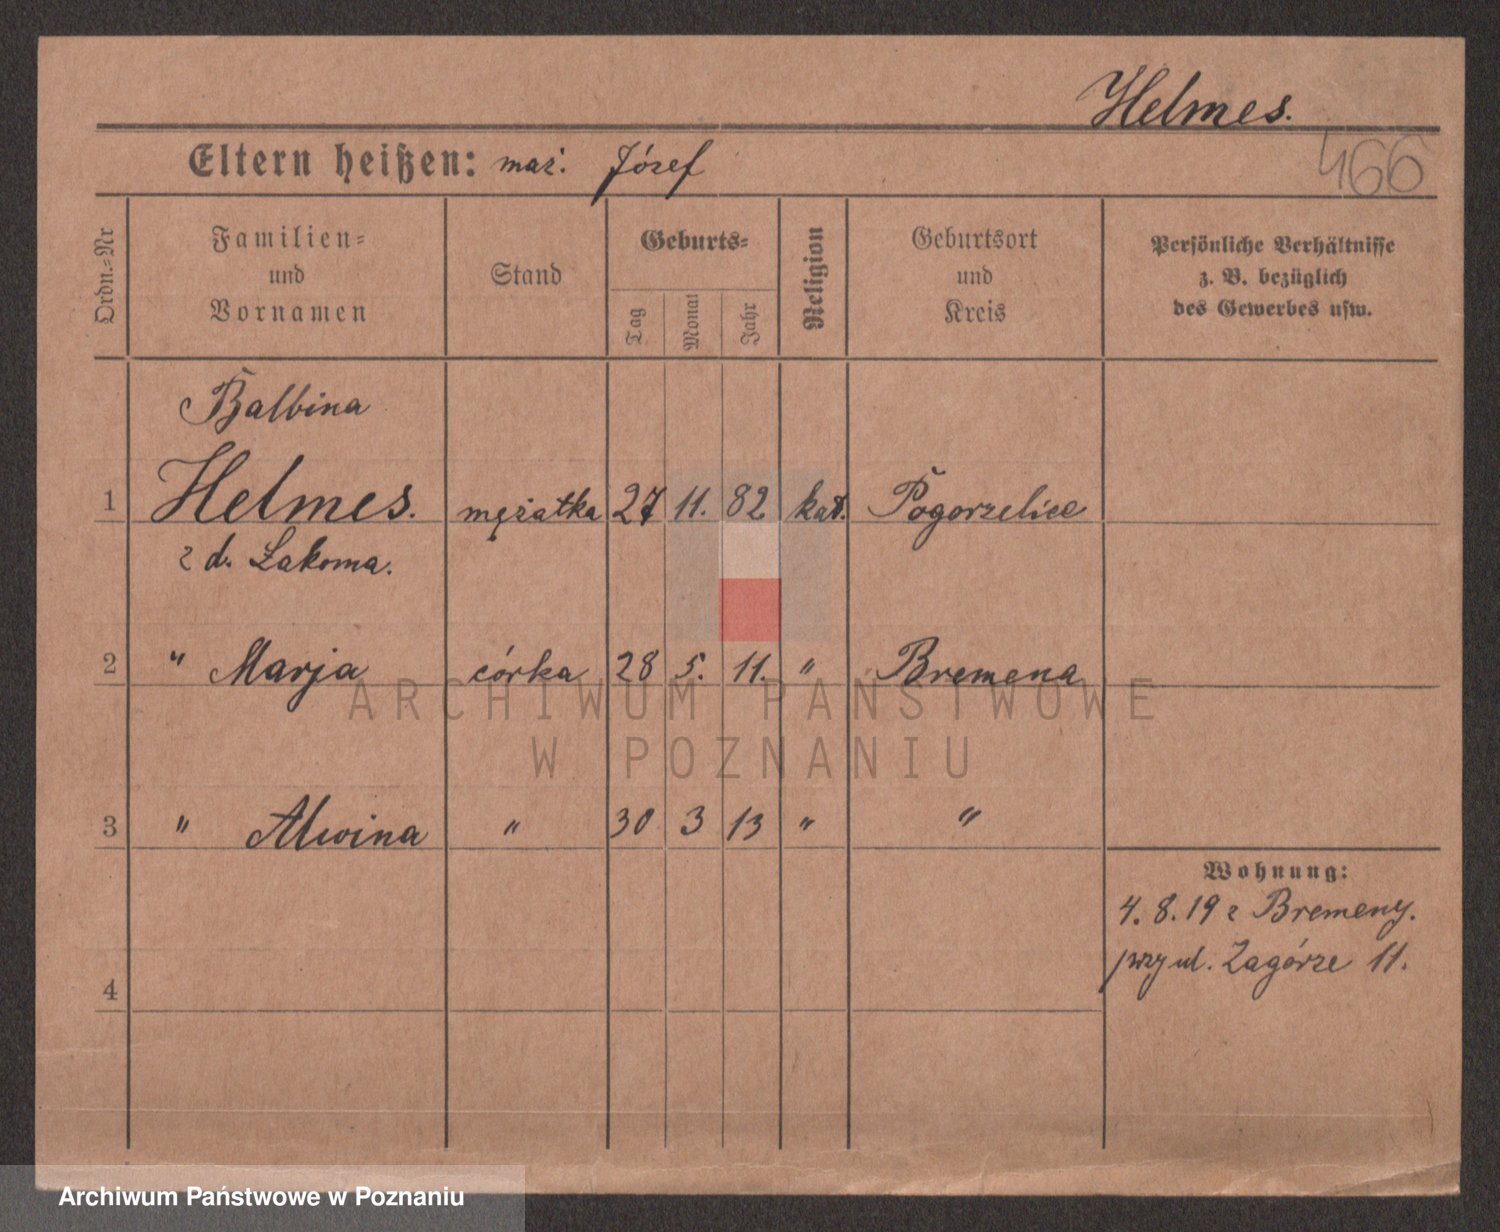 Helmes.
466
Eltern heißen: mąż. Józef
Ordn.=Nr
Familien=
und
Vornamen
Stand
Geburts=
Tag
Monat
Jahr
Religion
Geburtsort
und
Kreis
Persönliche Verhältnisse
z. B. bezüglich
des Gewerbes usw.
Balbina
1 Helmes. mężatka 27 11. 82 kat. Pogorzelice
z d. Łakoma.
2 " Marja córka 28 5. 11. " Bremena
ARCHIWUM PAŃSTWOWE
W POZNANIU
3 " Alwina " 30 3 13 " "
Wohnung:
4. 8. 19 z Bremeny.
przy ul. Zagórze 11.
4
Archiwum Państwowe w Poznaniu